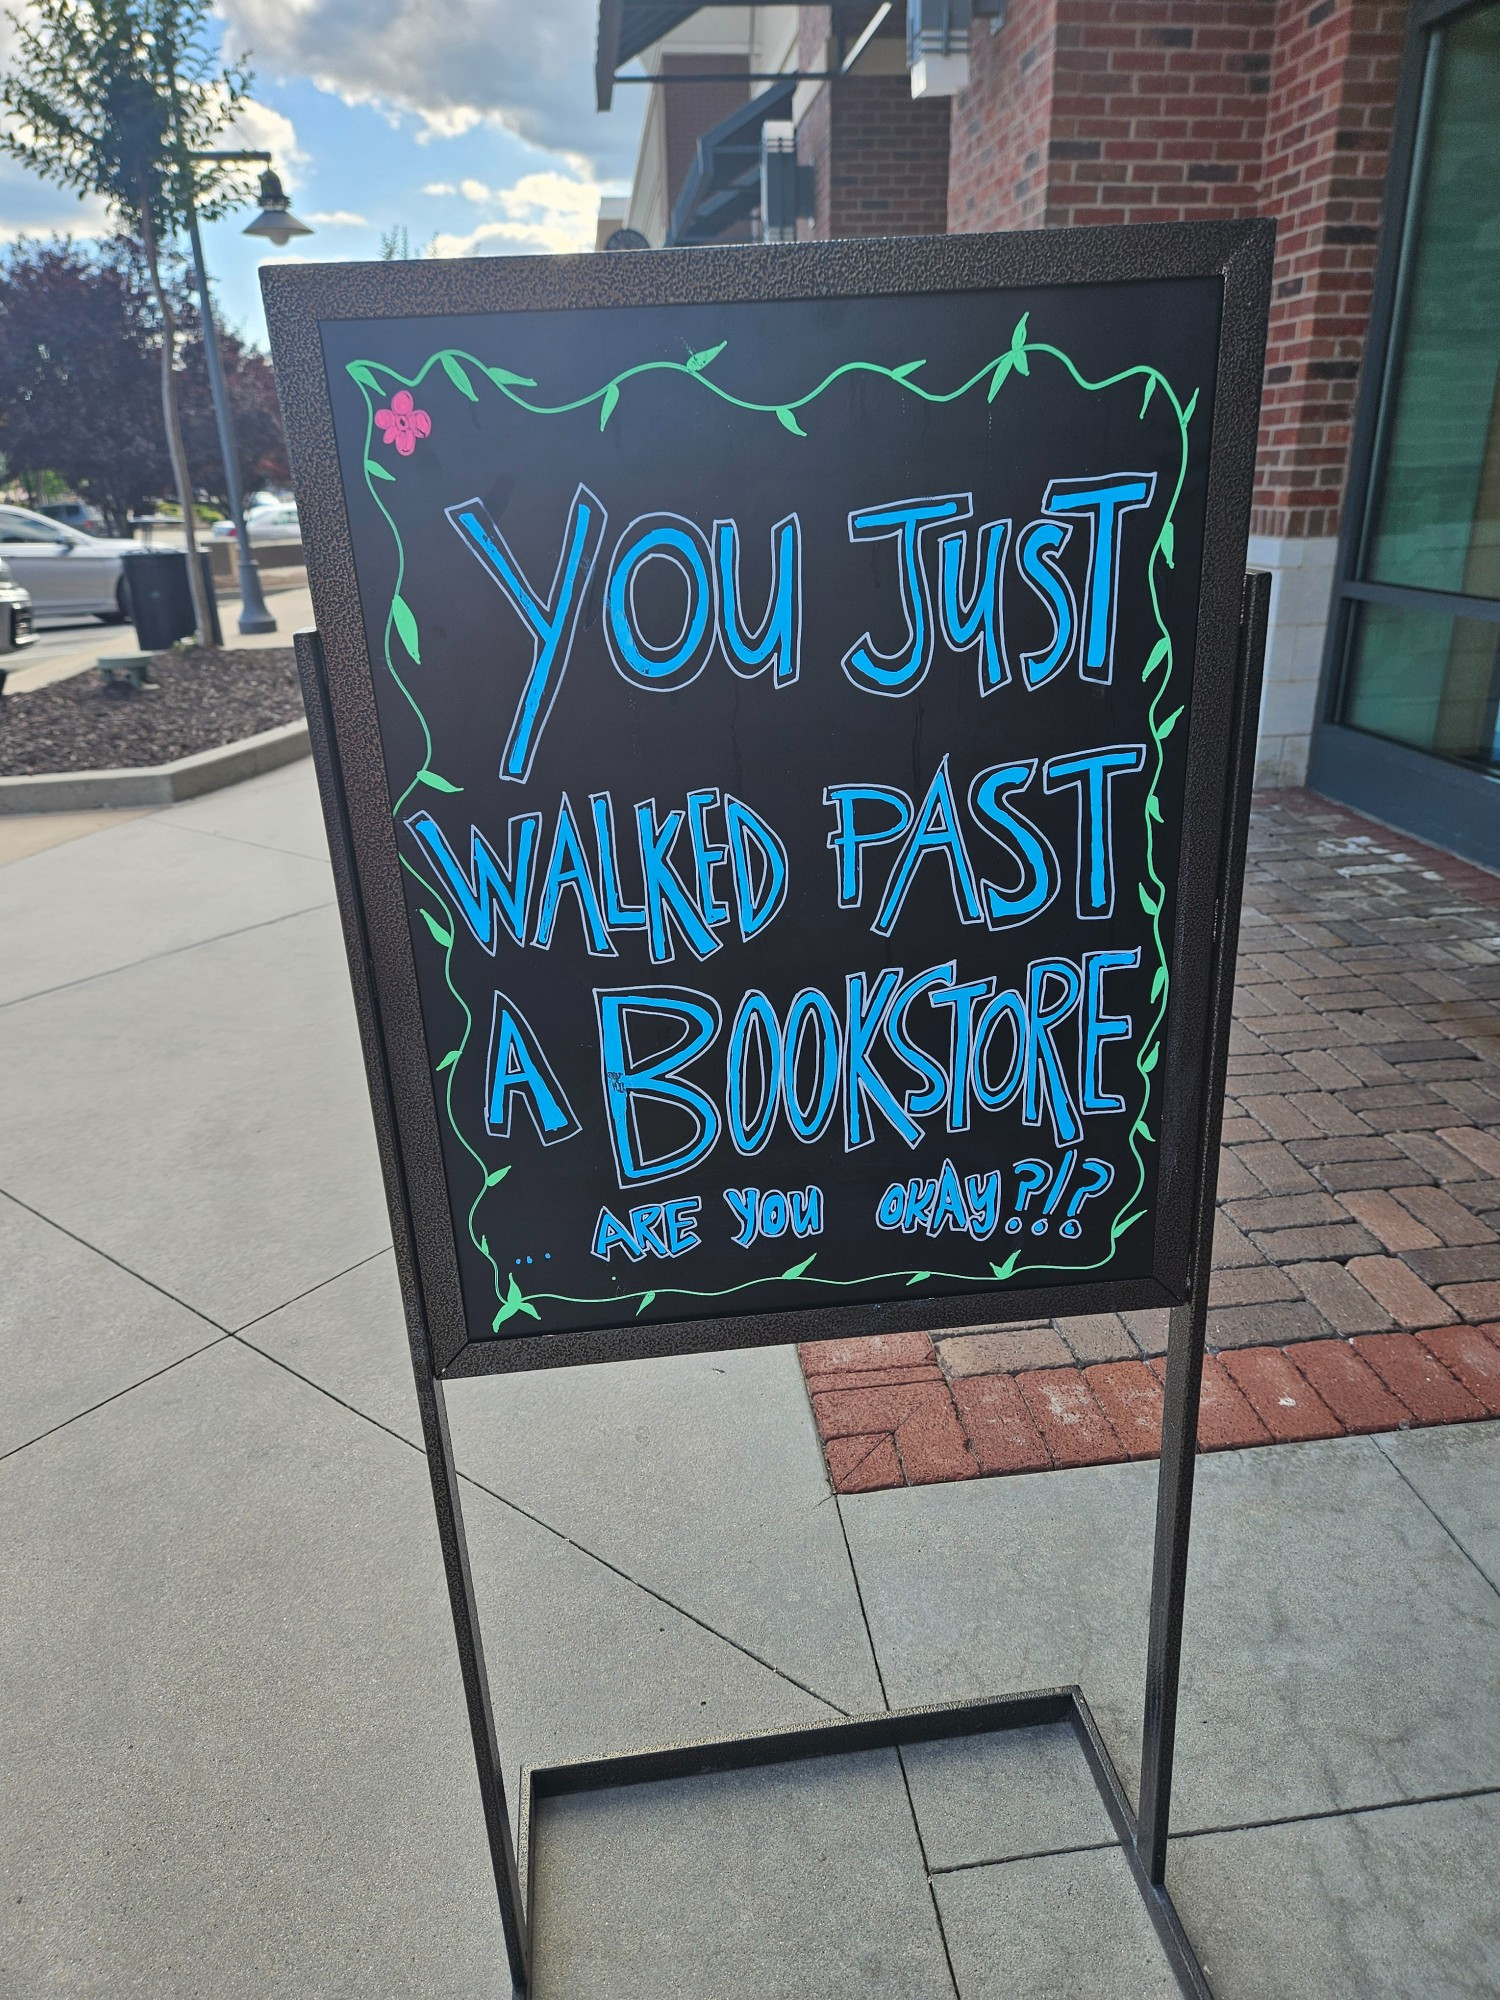 YOU JUST
WALKED PAST
A BOOKSTORE
... ARE YOU OKAY?!?